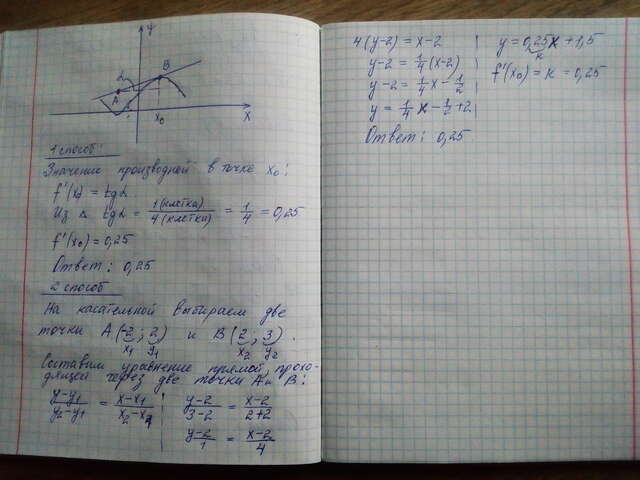 y
B
2
A
x₀
x
1 способ:
Значение производной в точке x₀:
f'(x) = tg α
Из Δ tg α = 1(клетка)/4(клетки) = 1/4 = 0,25
f'(x₀) = 0,25
Ответ: 0,25
2 способ
На касательной выбираем две
точки A(-2; 2) и B(2; 3).
x₁ y₁ x₂ y₂
Составим уравнение прямой, прохо-
дящей через две точки A и B:
(y-y₁)/(y₂-y₁) = (x-x₁)/(x₂-x₁)
(y-2)/(3-2) = (x-2)/(2+2)
(y-2)/1 = (x-2)/4
4(y-2) = x-2
y-2 = 1/4(x-2)
y-2 = 1/4x - 1/2
y = 1/4x - 1/2 + 2
Ответ: 0,25
y = 0,25x + 1,5
к
f'(x₀) = к = 0,25